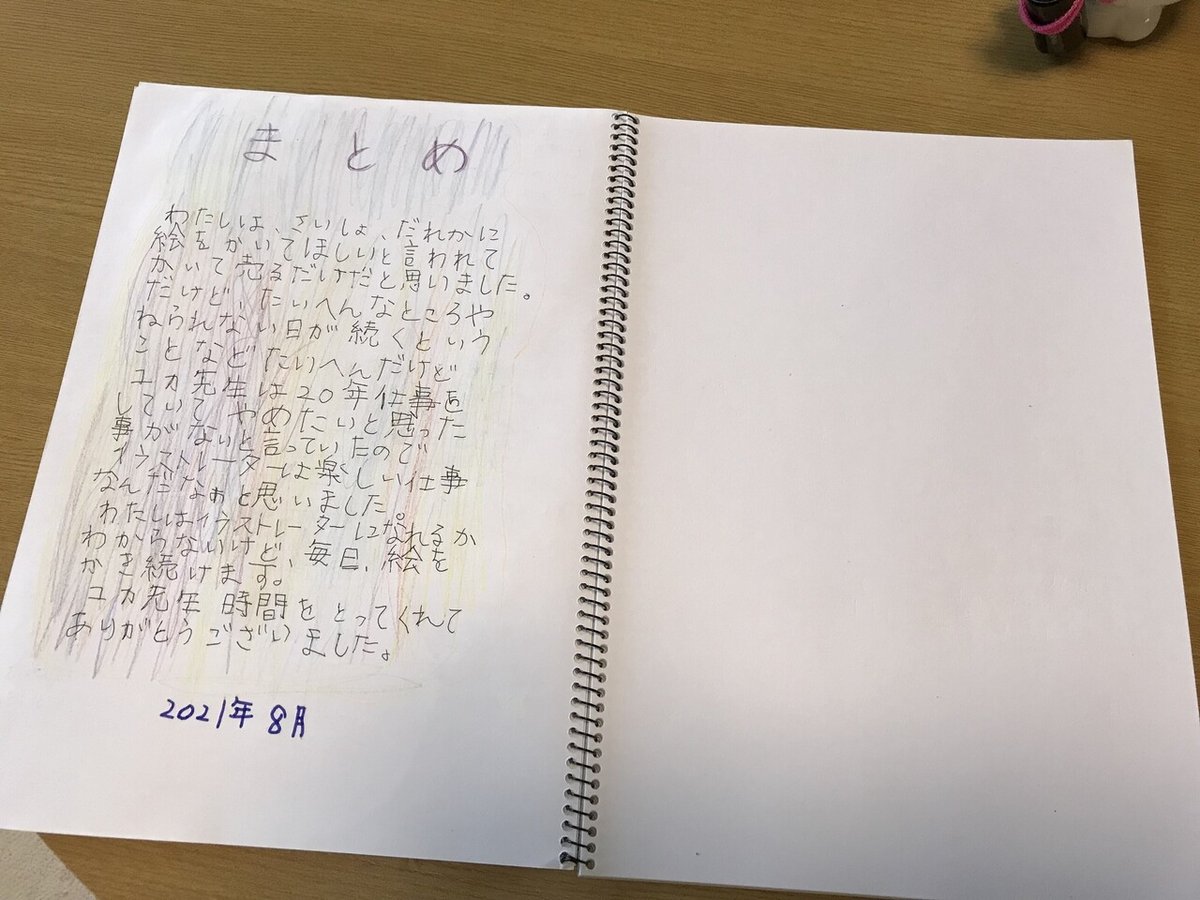 まとめ
わたしは、さいしょ、だれかに
絵をかいてほしいと言われて
かいて売るだけだと思いました。
だけど、たいへんなところや
ねられない日が続くという
ことなどたいへんだけど
ユカ先生は20年仕事を
していてやめたいと思った
事がないと言っていたので
イラストレーターは楽しい仕事
なんだなぁと思いました。
わたしはイラストレーターになれるか
わからないけど、毎日、絵を
かき続けます。
ユカ先生時間をとってくれて
ありがとうございました。
2021年8月